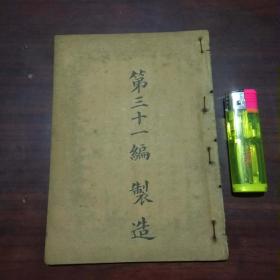 第三十一編 製造